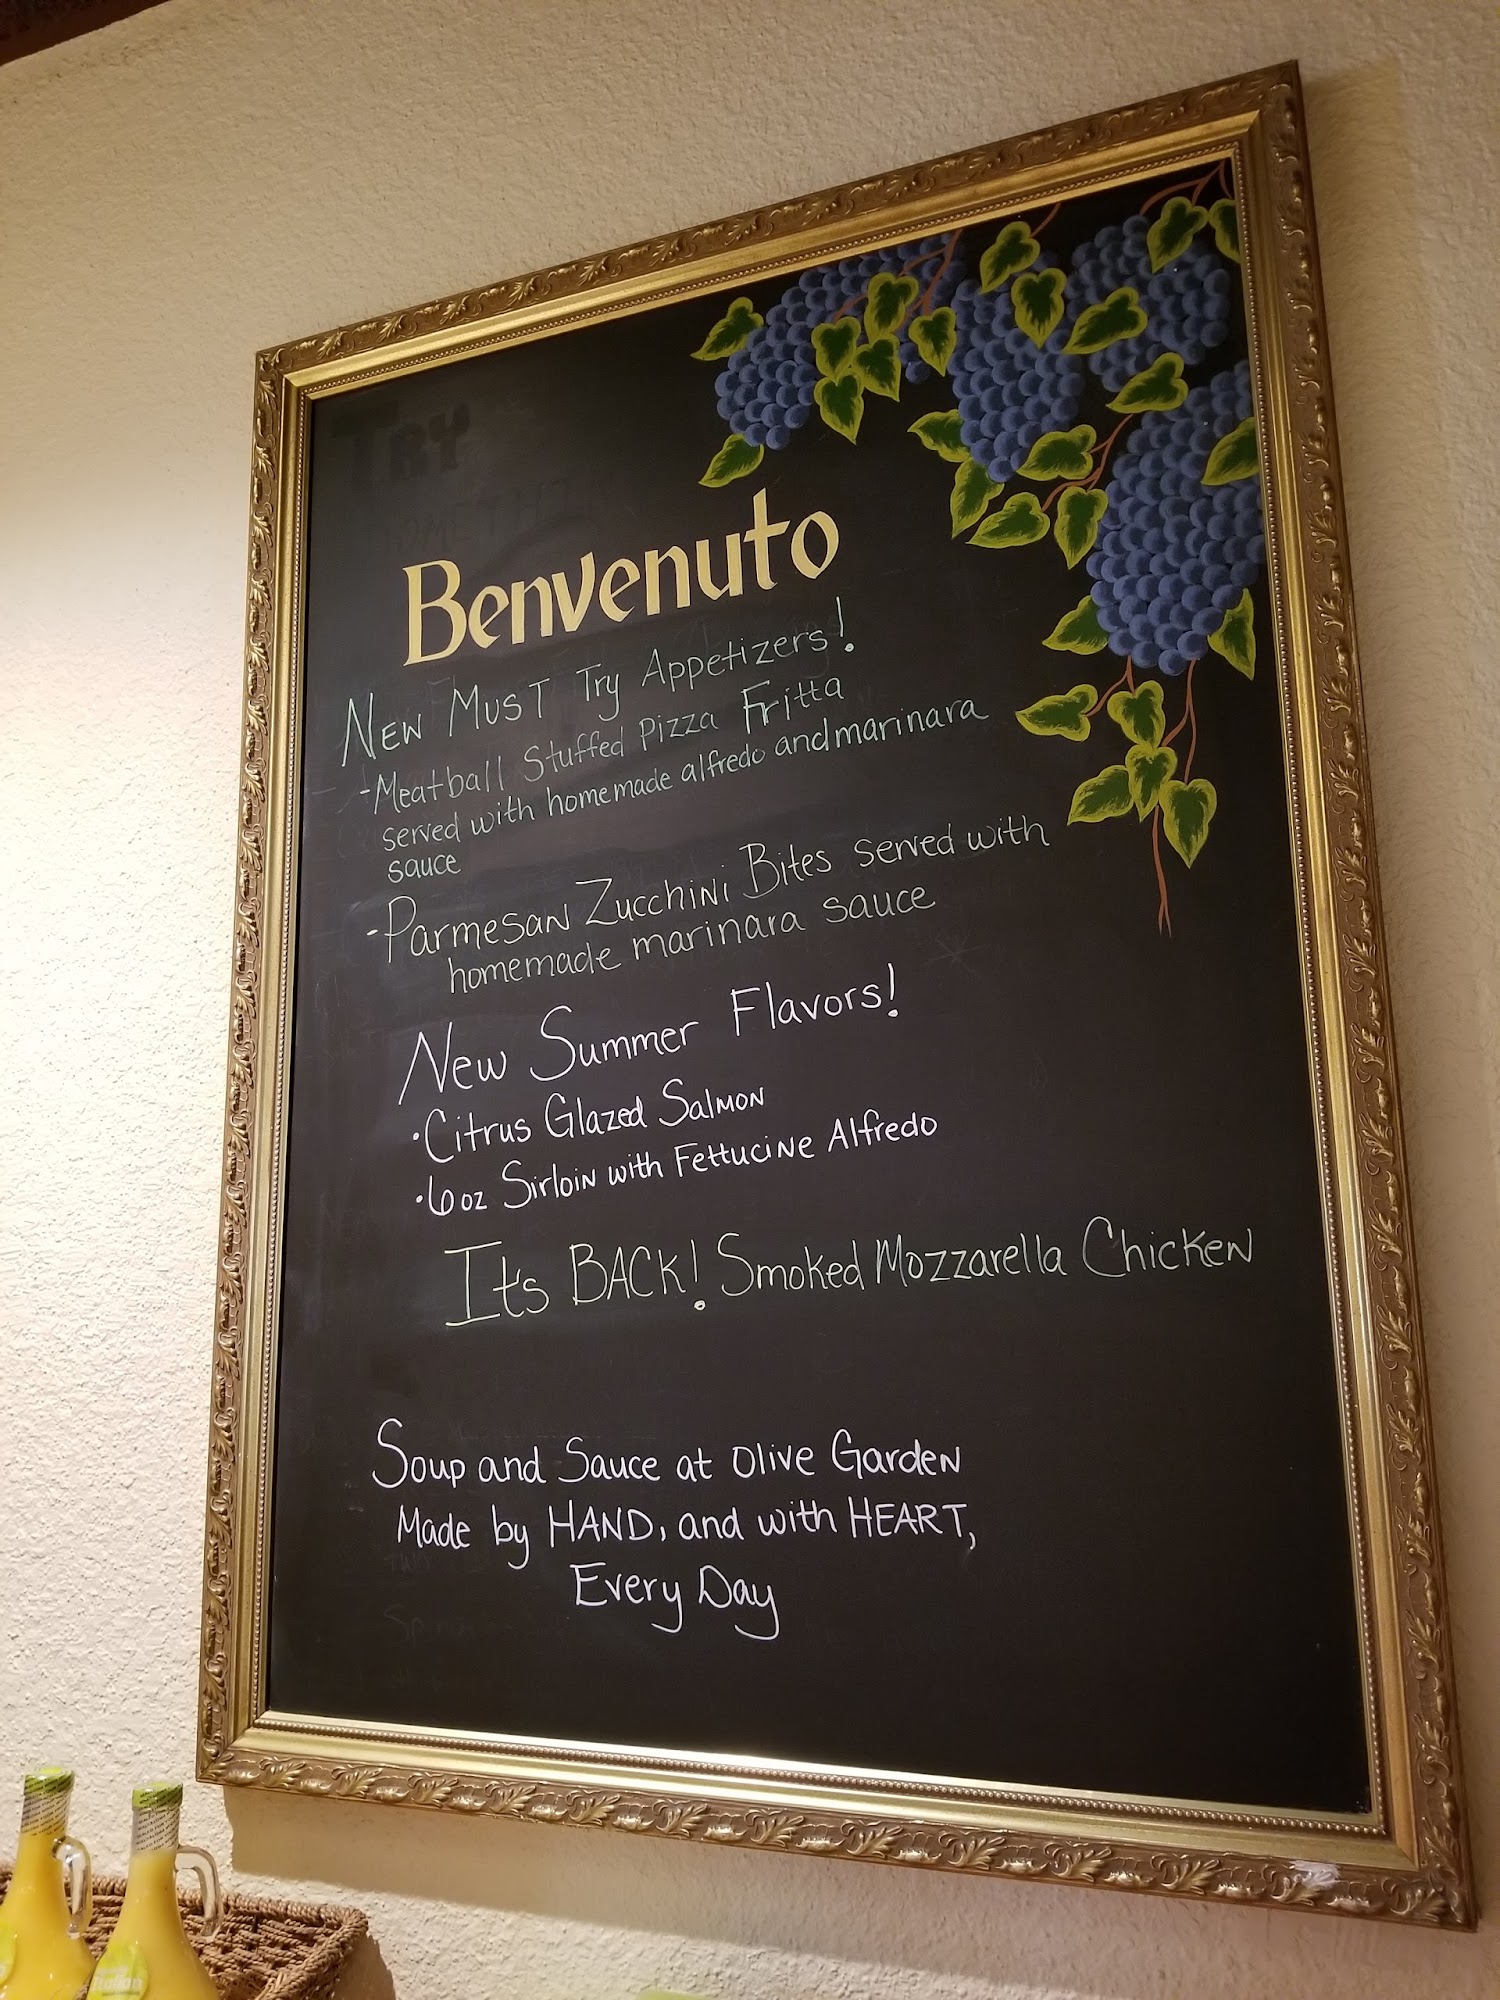 TRY
Benvenuto
New Must Try Appetizers!
-Meatball Stuffed Pizza Fritta
served with homemade alfredo and marinara
sauce
-Parmesan Zucchini Bites served with
homemade marinara sauce
New Summer Flavors!
•Citrus Glazed Salmon
•6oz Sirloin with Fettucine Alfredo
It's BACK! Smoked Mozzarella Chicken
Soup and Sauce at Olive Garden
Made by HAND, and with HEART,
Every Day
Italian